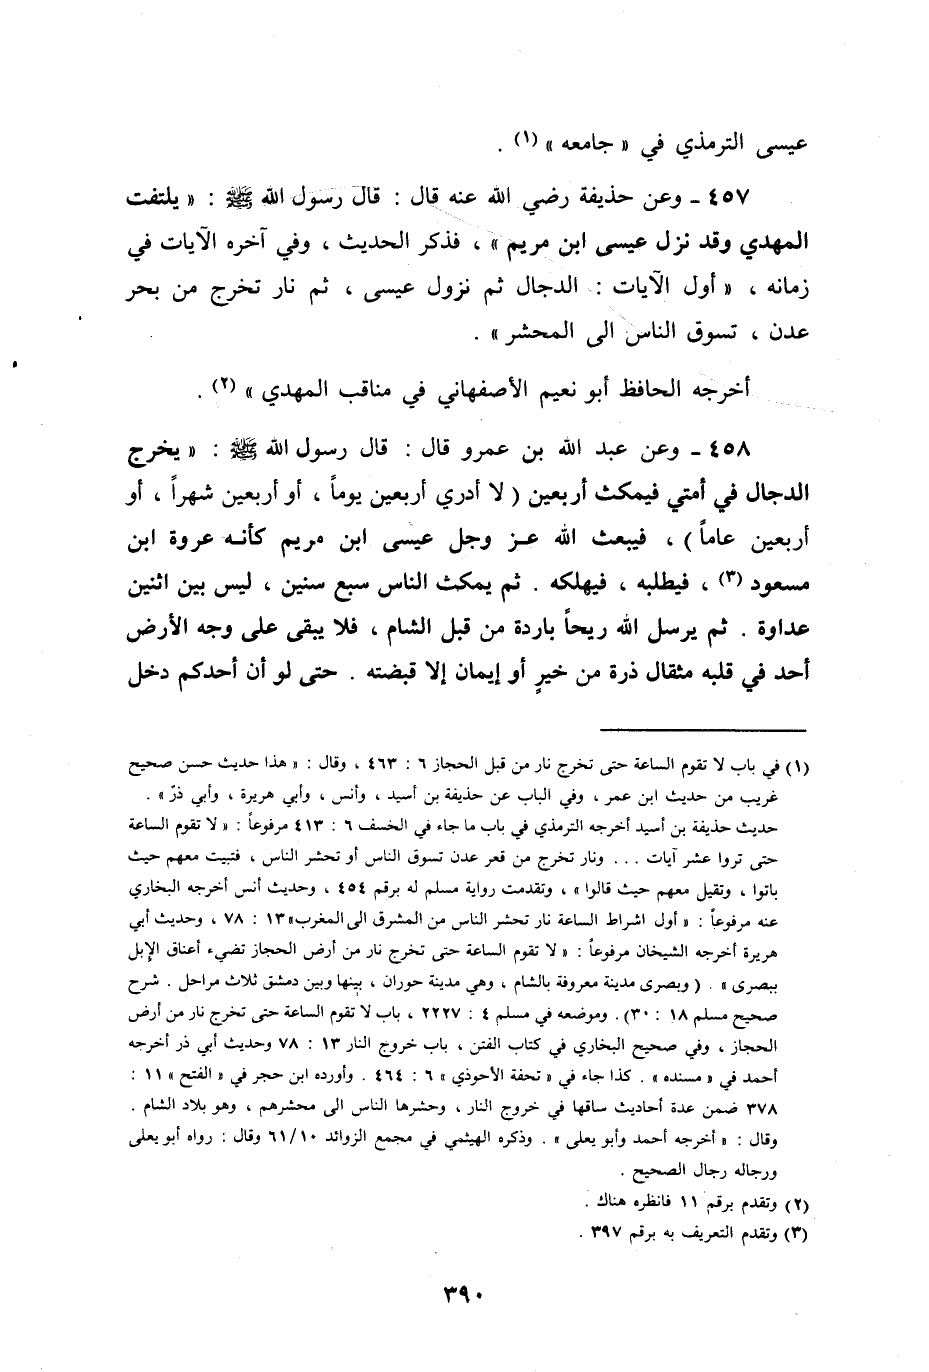 عيسى الترمذي في « جامعه » (١) .
٤٥٧ ـ وعن حذيفة رضي الله عنه قال : قال رسول الله ﷺ : « يلتفت
المهدي وقد نزل عيسى ابن مريم » ، فذكر الحديث ، وفي آخره الآيات في
زمانه ، « أول الآيات : الدجال ثم نزول عيسى ، ثم نار تخرج من بحر
عدن ، تسوق الناس الى المحشر » .
أخرجه الحافظ أبو نعيم الأصفهاني في مناقب المهدي » (٢) .
٤٥٨ ـ وعن عبد الله بن عمرو قال : قال رسول الله ﷺ : « يخرج
الدجال في أمتي فيمكث أربعين ( لا أدري أربعين يوماً ، أو أربعين شهراً ، أو
أربعين عاماً ) ، فيبعث الله عز وجل عيسى ابن مريم كأنه عروة ابن
مسعود (٣) ، فيطلبه ، فيهلكه . ثم يمكث الناس سبع سنين ، ليس بين اثنين
عداوة . ثم يرسل الله ريحاً باردة من قبل الشام ، فلا يبقى على وجه الأرض
أحد في قلبه مثقال ذرة من خيرٍ أو إيمان إلا قبضته . حتى لو أن أحدكم دخل
(١) في باب لا تقوم الساعة حتى تخرج نار من قبل الحجاز ٦ : ٤٦٣ ، وقال : « هذا حديث حسن صحيح
غريب من حديث ابن عمر ، وفي الباب عن حذيفة بن أسيد ، وأنس ، وأبي هريرة ، وأبي ذرّ » .
حديث حذيفة بن أسيد أخرجه الترمذي في باب ما جاء في الخسف ٦ : ٤١٣ مرفوعاً : « لا تقوم الساعة
حتى تروا عشر آيات ... ونار تخرج من قعر عدن تسوق الناس أو تحشر الناس ، فتبيت معهم حيث
باتوا ، وتقيل معهم حيث قالوا » ، وتقدمت رواية مسلم له برقم ٤٥٤ ، وحديث أنس أخرجه البخاري
عنه مرفوعاً : « أول اشراط الساعة نار تحشر الناس من المشرق الى المغرب» ١٣ : ٧٨ ، وحديث أبي
هريرة أخرجه الشيخان مرفوعاً : « لا تقوم الساعة حتى تخرج نار من أرض الحجاز تضيء أعناق الإبل
ببصرى » . ( وبصرى مدينة معروفة بالشام ، وهي مدينة حوران ، بينها وبين دمشق ثلاث مراحل . شرح
صحيح مسلم ١٨ : ٣٠) . وموضعه في مسلم ٤ : ٢٢٢٧ ، باب لا تقوم الساعة حتى تخرج نار من أرض
الحجاز ، وفي صحيح البخاري في كتاب الفتن ، باب خروج النار ١٣ : ٧٨ وحديث أبي ذر أخرجه
أحمد في « مسنده » . كذا جاء في « تحفة الأحوذي » ٦ : ٤٦٤ . وأورده ابن حجر في « الفتح » ١١ :
٣٧٨ ضمن عدة أحاديث ساقها في خروج النار ، وحشرها الناس الى محشرهم ، وهو بلاد الشام .
وقال : « أخرجه أحمد وأبو يعلى » . وذكره الهيثمي في مجمع الزوائد ٦١/١٠ وقال : رواه أبو يعلى
ورجاله رجال الصحيح .
(٢) وتقدم برقم ١١ فانظره هناك .
(٣) وتقدم التعريف به برقم ٣٩٧ .
٣٩٠